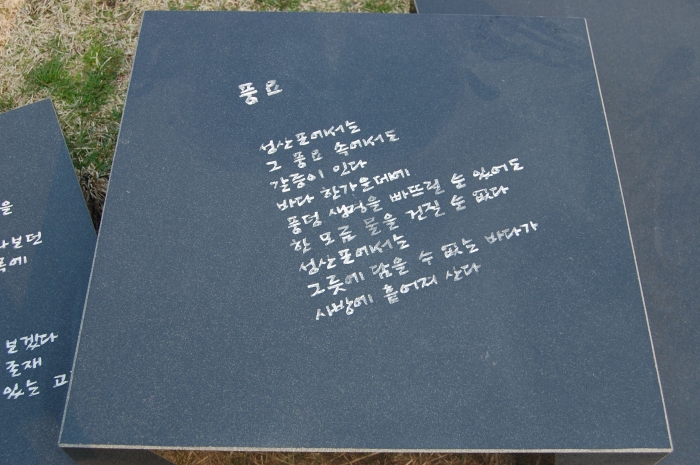 풍요
성산포에서는
그 풍요 속에서도
갈증이 인다
바다 한가운데에
풍덩 생명을 빠뜨릴 순 있어도
한 모금 물을 건질 순 없다
성산포에서는
그릇에 담을 수 없는 바다가
사방에 흩어져 산다
을
보던
폭에
보겠다
존재
있는 고